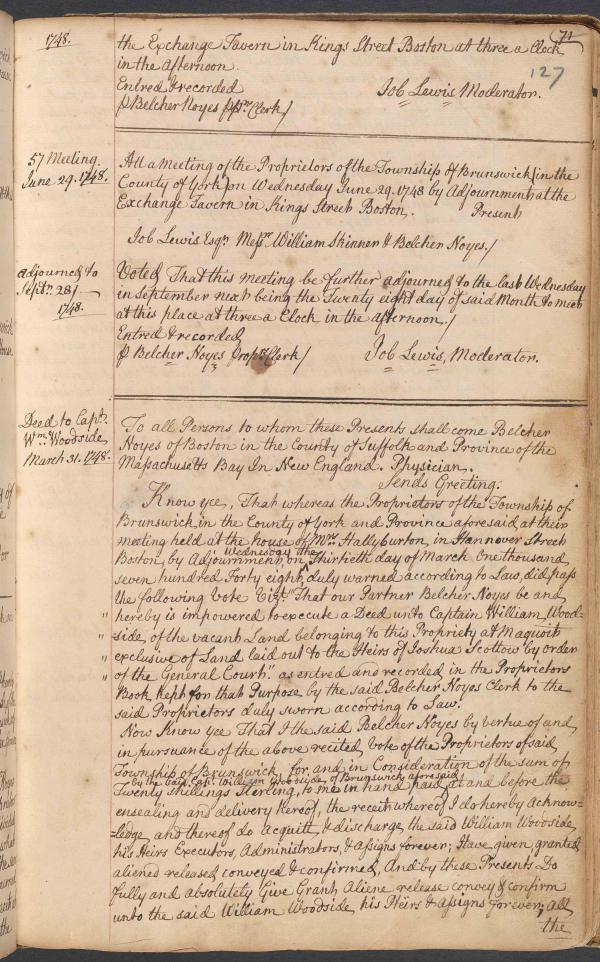 71
127
1748.
the Exchange Tavern in Kings Street Boston at three a Clock
in the Afternoon
Entred & recorded
Job Lewis Moderator.
⅌ Belcher Noyes Clerk /
57 Meeting.
June 29. 1748.
Att a Meeting of the Proprietors of the Township of Brunswick in the
County of York on Wednesday June 29. 1748 by Adjournment at the
Exchange Tavern in Kings Street Boston.
Present
Job Lewis Esqr. Messrs. William Skinner & Belcher Noyes. /
Adjourned to
Septr. 28 /
1748.
Voted That this meeting be further adjourned to the last Wednesday
in September next being the Twenty eight day of said Month to meet
at this place at three a Clock in the afternoon. /
Entred & recorded
⅌ Belcher Noyes Propr. Clerk /
Job Lewis, Moderator.
Deed to Capt.
Wm. Woodside
March 31. 1748.
To all Persons to whom these Presents shall come Belcher
Noyes of Boston in the County of Suffolk and Province of the
Massachusetts Bay In New England. Physician.
Sends Greeting.
Know yee, That whereas the Proprietors of the Township of
Brunswick in the County of York and Province aforesaid at their
meeting held at the house of Mrs. Hallyburton, in Hannover Street
Boston, by Adjournment, on Wednesday the Thirtieth day of March One thousand
seven hundred Forty eight, duly warned according to Law, did pass
the following Vote Vizt. "That our Partner Belcher Noyes be and
" hereby is impowered to execute a Deed unto Captain William Wood=
" side, of the vacant Land belonging to this Propriety at Maquoit
" exclusive of Land laid out to the Heirs of Joshua Scottow by order
" of the General Court". as entred and recorded in the Proprietors
Book kept for that Purpose by the said Belcher Noyes Clerk to the
said Proprietors duly sworn according to Law.
Now Know ye That I the said Belcher Noyes by vertue of and
in pursuance of the above recited Vote of the Proprietors of said
Township of Brunswick, for and in Consideration of the sum of
Twenty shillings Sterling, to me in hand paid by the said Capt. William Woodside of Brunswick aforesaid at and before the
ensealing and delivery hereof, the receit whereof I do hereby acknow=
=ledge, and thereof do acquitt & discharge the said William Woodside
his Heirs Executors, Administrators, & assigns forever; Have given, granted
aliened released, conveyed & confirmed, And by these Presents Do
fully and absolutely Give Grant Aliene release convey & confirm
unto the said William Woodside, his Heirs & assigns forever; All
the